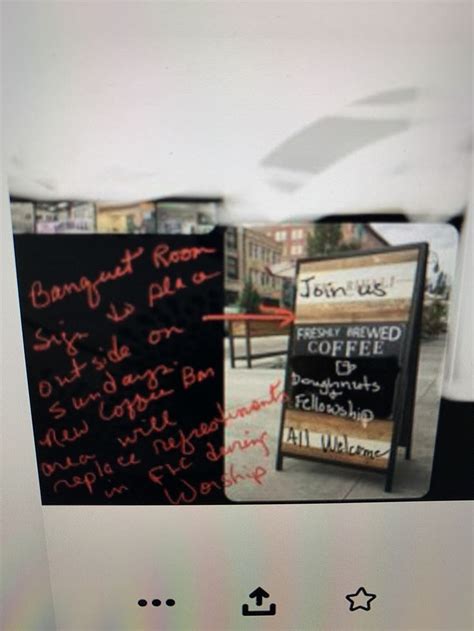 Banquet Room
Sign to place
outside on
Sundays.
New Coffee Bar
area will
replace refreshments
in FLC during
Worship
Join us
FRESHLY BREWED
COFFEE
Doughnuts
&
Fellowship
All Welcome